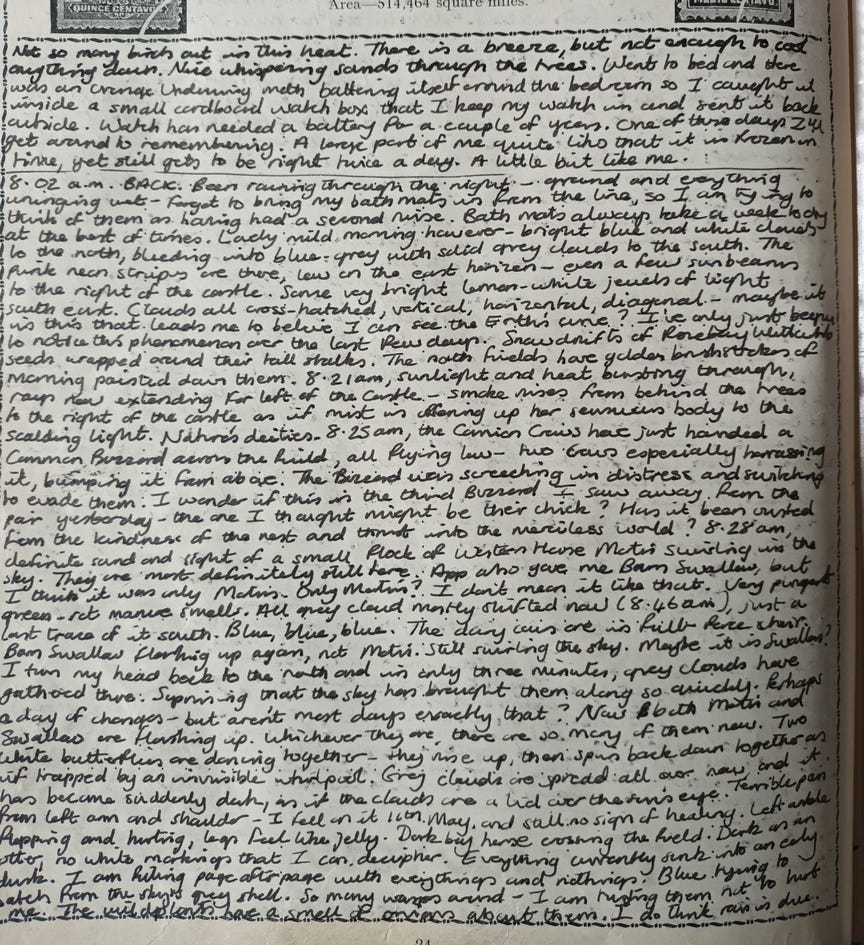 Area—514,464 square miles.
QUINCE CENTAVOS
CENTAVO
Not so many birds out in this heat. There is a breeze, but not enough to cool
anything down. Nice whispering sands through the trees. Went to bed and there
was an Orange Underwing moth battering itself around the bedroom so I caught it
inside a small cardboard watch box that I keep my watch in and sent it back
outside. Watch has needed a battery for a couple of years. One of these days I'll
get around to remembering. A large part of me quite likes that it is frozen in
time, yet still gets to be right twice a day. A little bit like me.
8.02 a.m. BACK. Been raining through the night – ground and everything
wringing wet – forgot to bring my bath mats in from the line, so I am trying to
think of them as having had a second rinse. Bath mats always take a week to dry
at the best of times. Lovely mild morning however – bright blue and white clouds
to the north, bleeding into blue-grey with solid grey clouds to the south. The
pink neon stripes are there, low on the east horizon – even a few sunbeams
to the right of the castle. Some very bright lemon-white jewels of light
south east. Clouds all cross-hatched, vertical, horizontal, diagonal – maybe it
is this that leads me to believe I can see the Earth's curve? I've only just begun
to notice this phenomenon over the last few days. Snowdrifts of Rosebay Willowherb
seeds wrapped around their tall stalks. The north fields have golden brushstrokes of
morning painted down them. 8.21am, sunlight and heat bursting through,
rays now extending far left of the castle – smoke rises from behind the trees
to the right of the castle as if mist is offering up her sensuous body to the
scalding light. Nature's deities. 8.25am, the Carrion Crows have just handed a
Common Buzzard across the field, all flying low – two Crows especially harrassing
it, bumping it from above. The Buzzard was screeching in distress and switching
to evade them. I wonder if this is the third Buzzard I saw away from the
pair yesterday – the one I thought might be their chick? Has it been ousted
from the kindness of the nest and thrust into the merciless world? 8.28am,
definite sound and sight of a small flock of Western House Martins swirling in the
sky. They are most definitely still here. App also gave me Barn Swallow, but
I think it was only Martins. Only Martins? I don't mean it like that. Very pungent
green-rot manure smells. All grey cloud mostly shifted now (8.46am), just a
last trace of it south. Blue, blue, blue. The dairy cows are in full force choir.
Barn Swallow flashing up again, not Martin. Still swirling the sky. Maybe it is Swallows?
I turn my head back to the north and in only three minutes, grey clouds have
gathered there. Suprising that the sky has brought them along so quickly. Perhaps
a day of changes – but aren't most days exactly that? Now both Martin and
Swallow are flashing up. Whichever they are, there are so many of them now. Two
White butterflies are dancing together – they rise up, then spin back down together as
if trapped by an invisible whirlpool. Grey clouds are spread all over now, and it
has become suddenly dark, as if the clouds are a lid over the sun's eye. Terrible pain
from left arm and shoulder – I fell on it 11th May, and still no sign of healing. Left ankle
flapping and hurting, legs feel like jelly. Dark bay horse crossing the field. Dark as an
otter, no white markings that I can decipher. Everything currently sunk into an early
dusk. I am filling page after page with everythings and nothings. Blue trying to
hatch from the sky's grey shell. So many wasps around – I am trusting them not to hurt
me. The wild plants have a smell of onions about them. I do think rain is due.
24